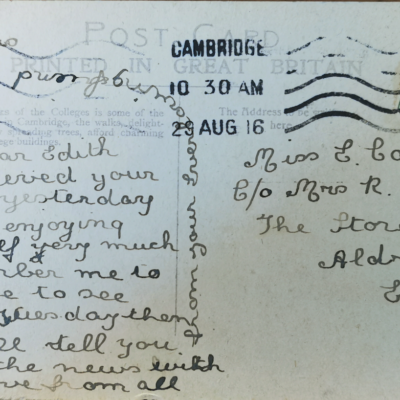 POST CARD
PRINTED IN GREAT BRITAIN
CAMBRIDGE
10 30 AM
29 AUG 16
of the Colleges is some of the
in Cambridge, the walks, delight-
spreading trees, afford charming
buildings.
The Address
here
ar Edith
eived your
yesterday
enjoying
lf very much
mber me to
e to see
Tuesday then
ll tell you
the news with
ve from all
from your
Miss E. Co
C/o Mrs R.
The Store
Ald
E